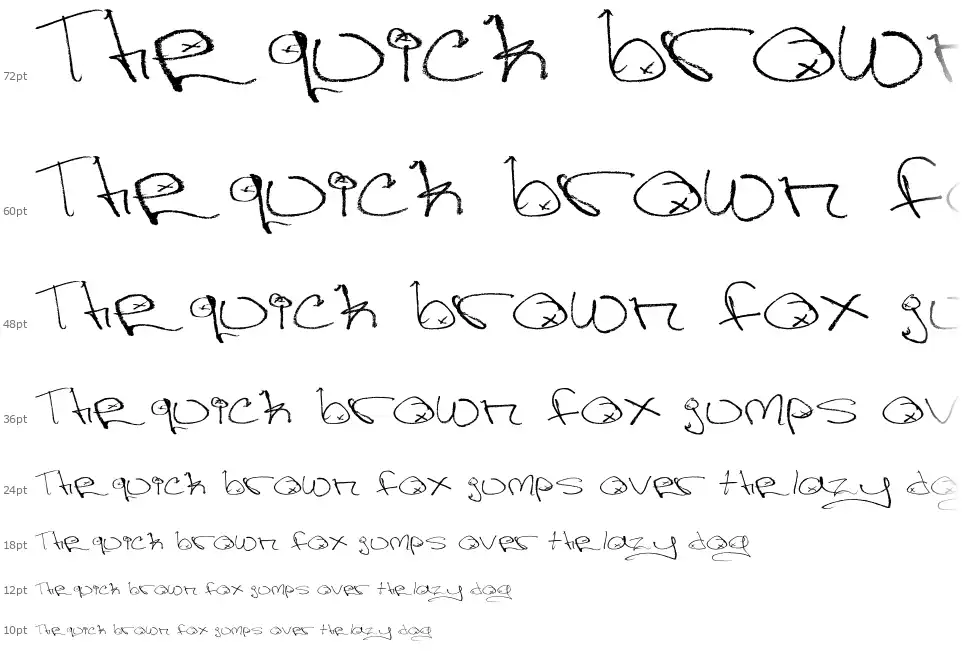 72pt The quick brown
60pt The quick brown fo
48pt The quick brown fox gu
36pt The quick brown fox gumps ov
24pt The quick brown fox gumps over the lazy dog
18pt The quick brown fox gumps over the lazy dog
12pt The quick brown fox gumps over the lazy dog
10pt The quick brown fox gumps over the lazy dog